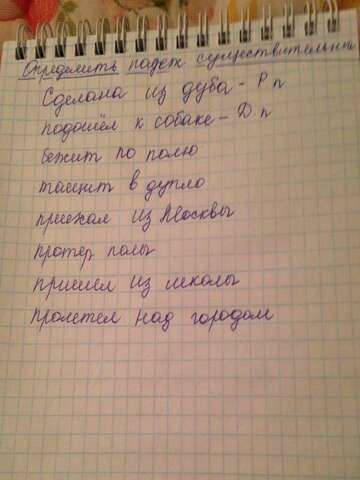 Определить падеж существительных
Сделана из дуба - Р п
подошёл к собаке - Д п
бежит по полю
тащит в дупло
приехал из Москвы
протёр полы
пришел из школы
пролетел над городом